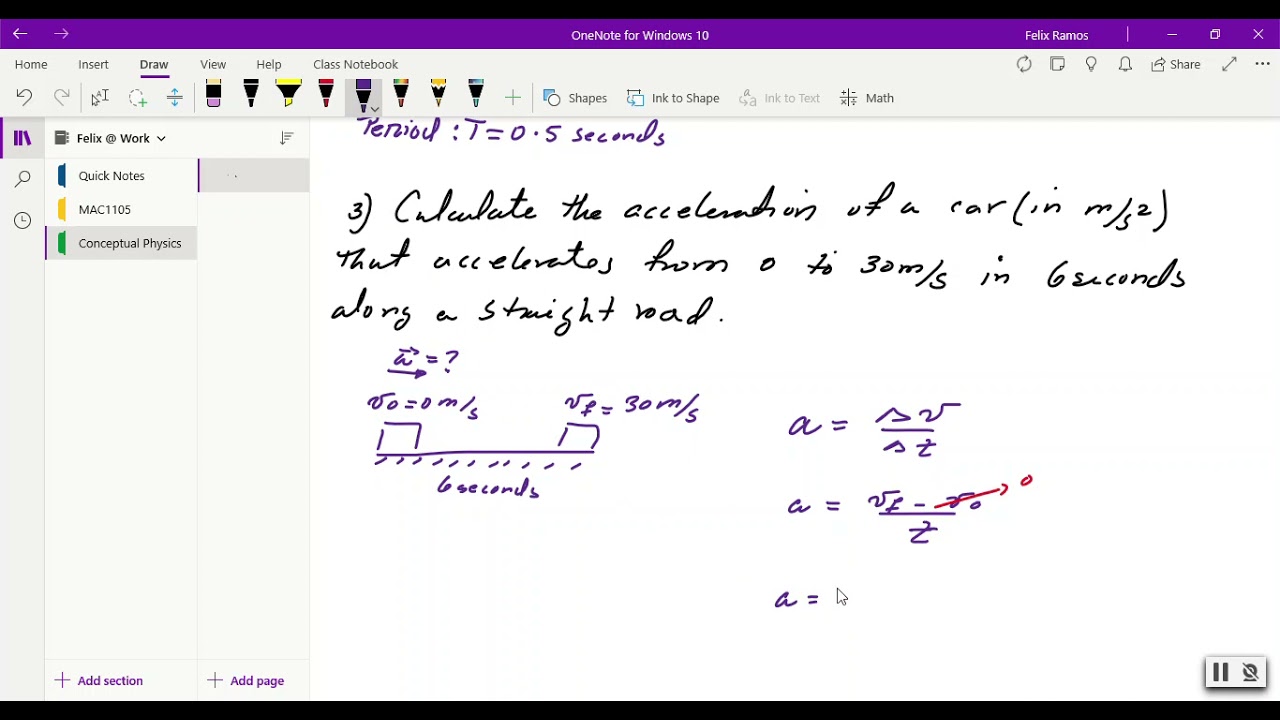 OneNote for Windows 10
Felix Ramos
Home Insert Draw View Help Class Notebook
Share
Shapes Ink to Shape Ink to Text Math
Felix @ Work
Quick Notes
MAC1105
Conceptual Physics
Add section
Add page
Period : T = 0.5 seconds
3) Calculate the acceleration of a car (in m/s2)
that accelerates from 0 to 30 m/s in 6 seconds
along a straight road.
a⃗ = ?
v0 = 0 m/s vf = 30 m/s
6 seconds
a = Δv/Δt
a = vf - v0/t 0
a =